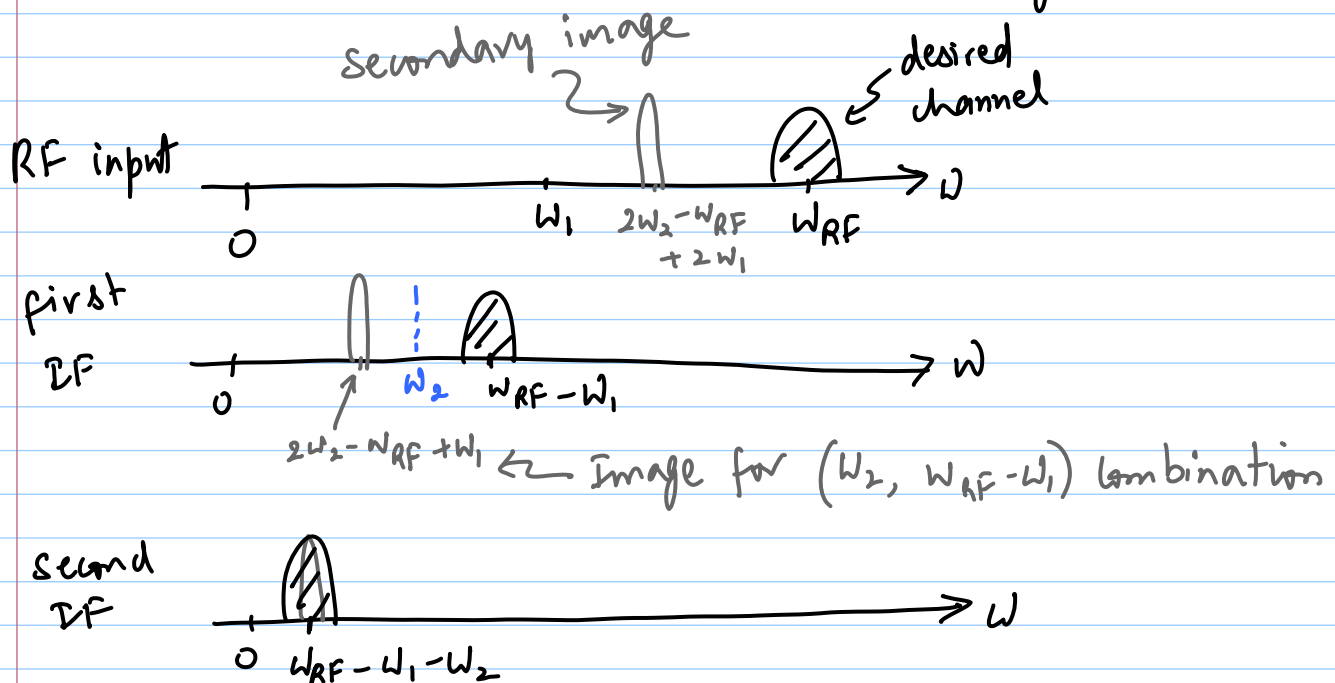 secondary image
desired
channel
RF input
0
ω₁
2ω₂-ω_RF
+2ω₁
ω_RF
ω
first
IF
0
ω₂
ω_RF-ω₁
ω
2ω₂-ω_RF+ω₁
Image for (ω₂, ω_RF-ω₁) combination
second
IF
0
ω_RF-ω₁-ω₂
ω